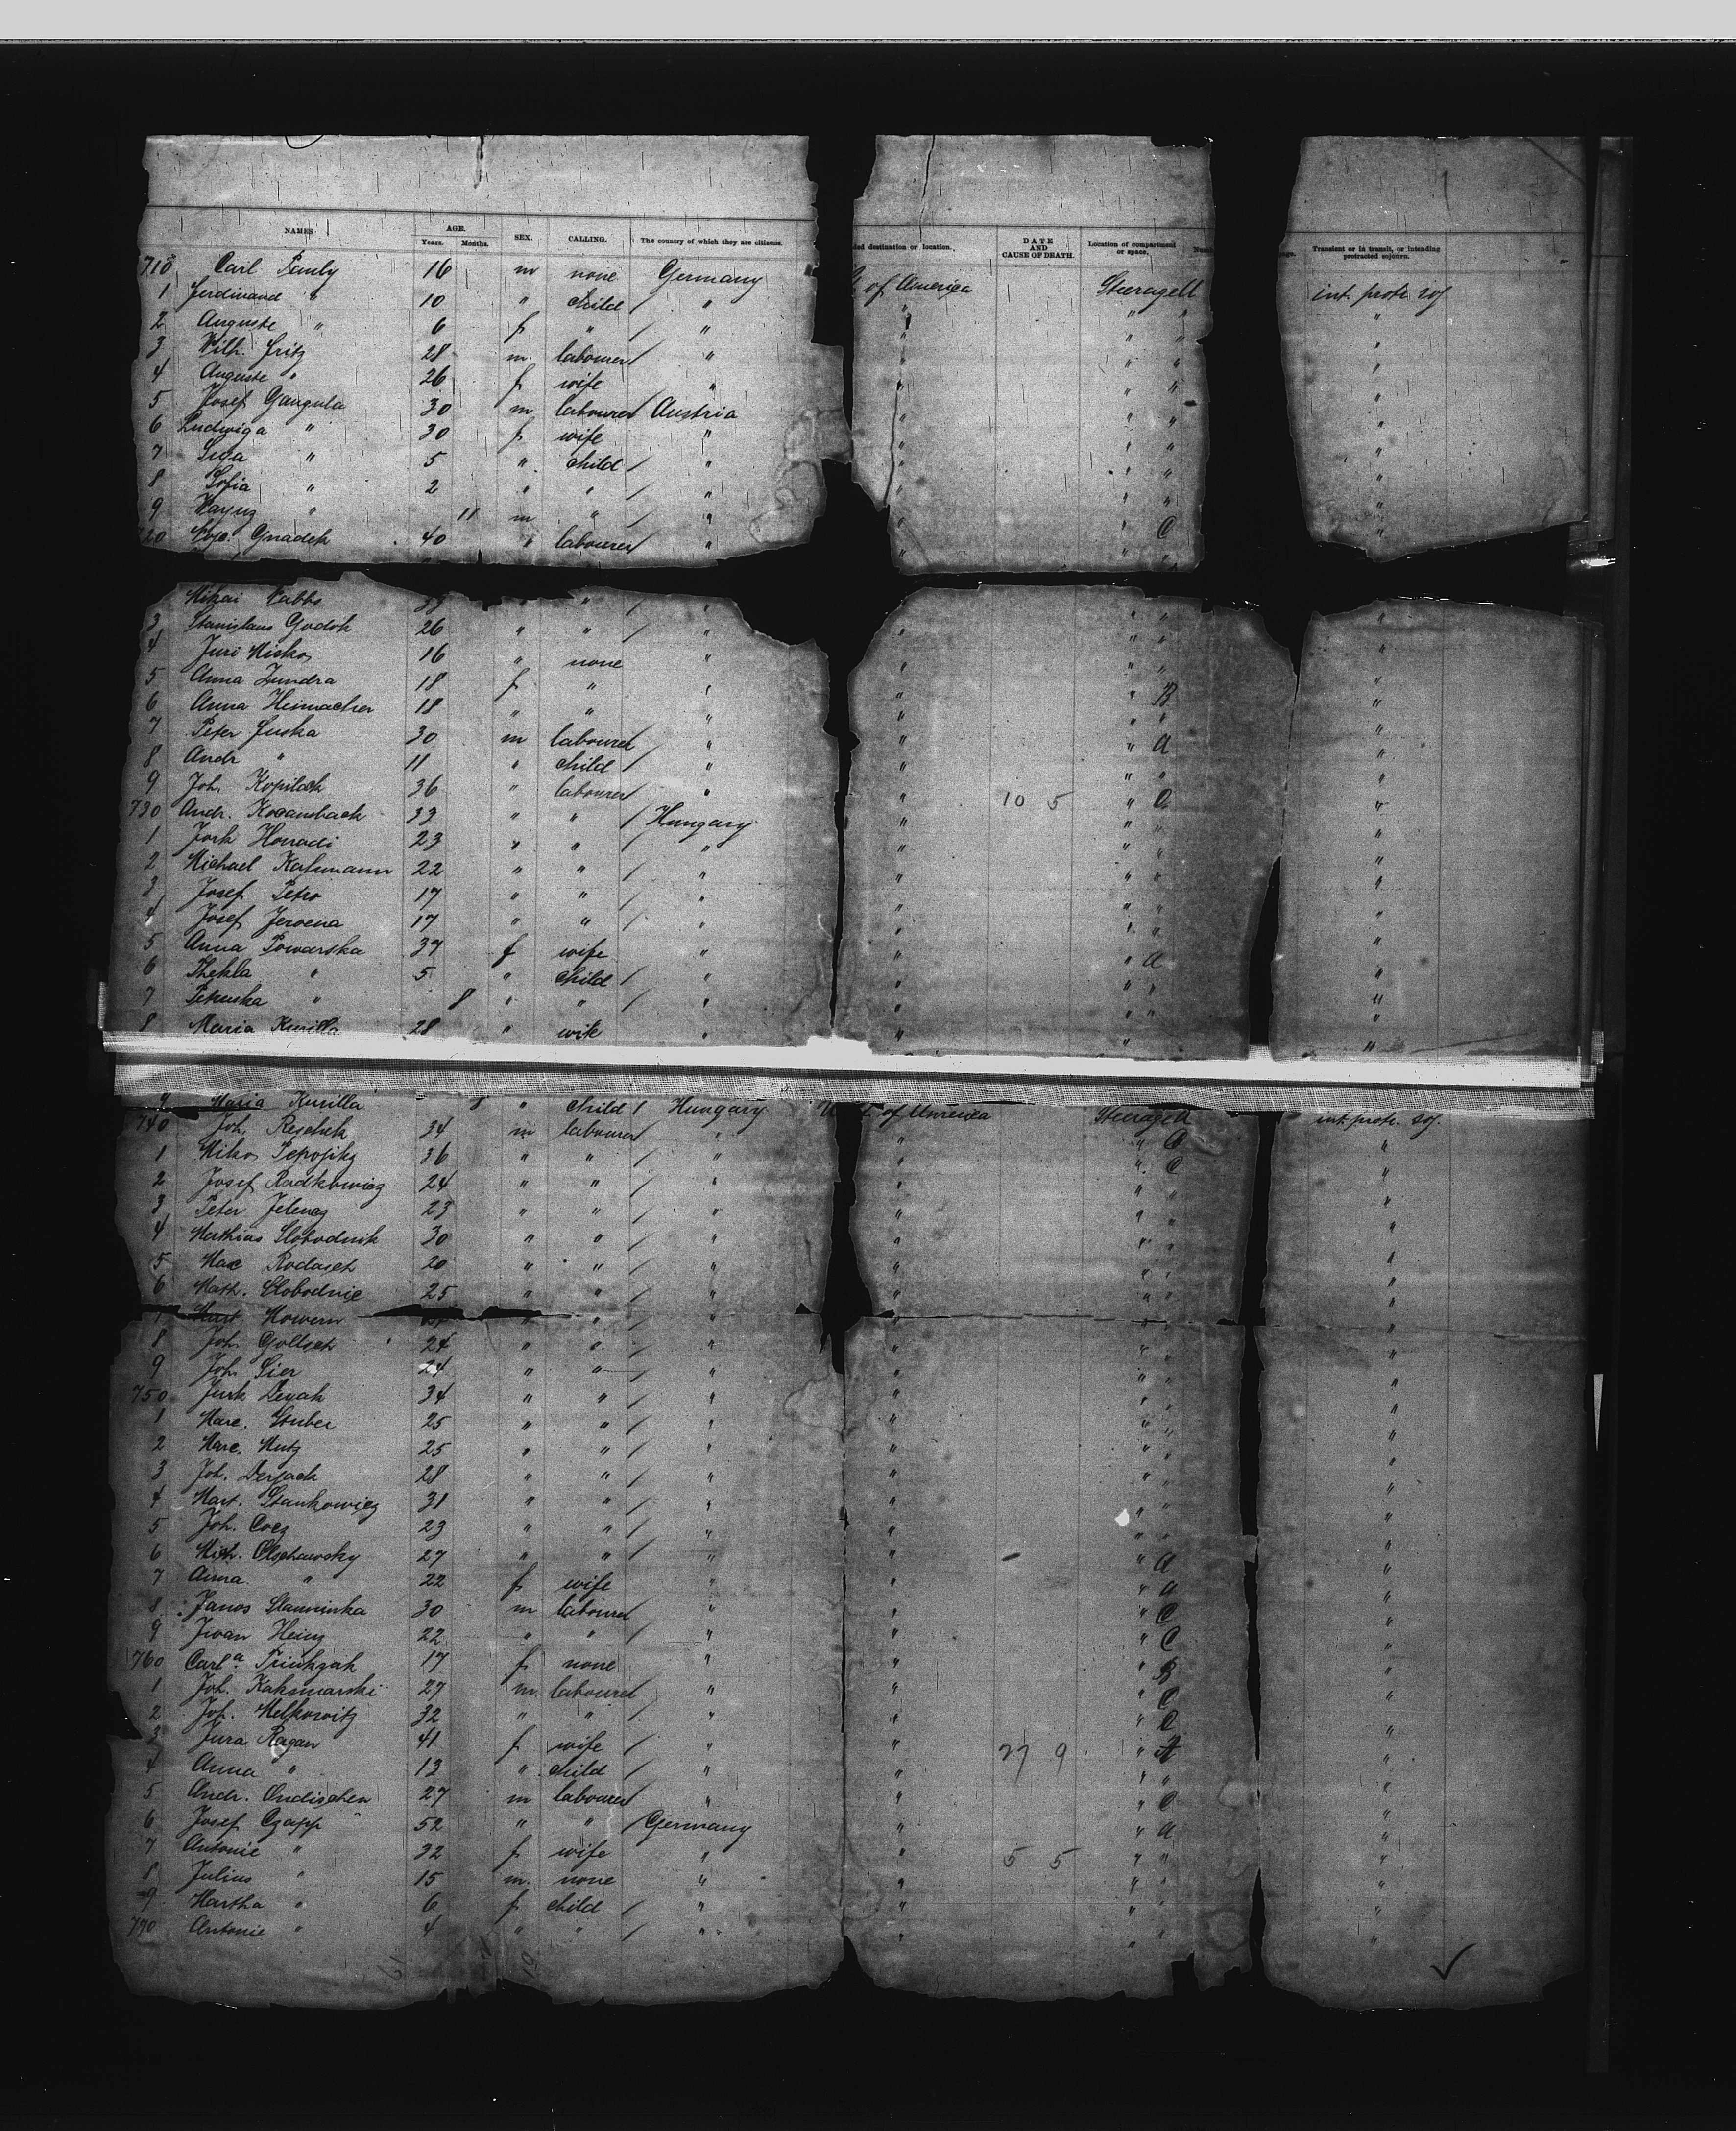 NAMES AGE. Years. Months. SEX. CALLING. The country of which they are citizens. ded destination or location. DATE AND CAUSE OF DEATH. Location of compartment or space. Transient or in transit, or intending protracted sojourn.
710 Carl Pauly 16 m none Germany of America Steerage int. protr. soj
1 Ferdinand " 10 " child / " " " " "
2 Auguste " 6 f " / " " " " "
3 Wilh. Fritz 28 m. labourer / " " " " "
4 Auguste " 26 f wife " " " " "
5 Josef Gangula 30 m labourer Austria " " " "
6 Ludwiga " 30 f wife " " " " "
7 " 5 " child / " " " " "
8 Sofia " 2 " " / " " " " "
9 " 11 m " / " " " C "
720 Gnadek 40 " labourer " " " "
Mikai " / " " " "
3 Stanislaus Godok 26 " " / " " " " "
4 Juri Miskos 16 " none " " " " "
5 Anna Zundra 18 f " " " " B "
6 Anna Heimacher 18 " " " " " " "
7 Peter Juska 30 m labourer " " " a "
8 Andr " 11 " child / " " " " "
9 Joh. Kopilak 36 " labourer " " 10 5 " C "
730 Andr. Kocansback 33 " " / Hungary " " " "
1 Jork Honadi 23 " " / " " " " "
2 Michael Kafmann 22 " " / " " " " "
3 Josef Petro 17 " " " " " " "
4 Josef Jerocna 17 " " / " " " " "
5 Anna Powarska 37 f wife " " " a "
6 Thekla " 5 " child / " " " " "
7 " 8 " " / " " " " "
8 Maria Kurilla 28 " wife " " " "
9 Maria Kurilla 8 " child / Hungary of America Steerage int. protr. soj.
740 Joh. Reschek 34 m labourer " " " C "
1 Mikos 36 " " / " " " C "
2 Josef Radkowicz 24 " " / " " " " "
3 Peter Jelenaz 23 " " / " " " " "
4 Mathias Slobodnik 30 " " / " " " " "
5 Max Rodasch 20 " " / " " " " "
6 Math. Slobodnic 25 " " / " " " " "
7 Mart Howern " " / " " " " "
8 Joh Gollsch 24 " " / " " " " "
9 Joh. Sier 24 " " / " " " " "
750 Jurk Deyak 34 " " / " " " " "
1 Marc. Stuber 25 " " / " " " " "
2 Marc. Mutz 25 " " / " " " " "
3 Joh. Derjack 28 " " / " " " " "
4 Mart. Stankowicz 31 " " / " " " " "
5 Joh. Cocz 23 " " / " " " " "
6 Mich. Olschawsky 27 " " / " " " a "
7 Anna " 22 f wife " " " a "
8 Janos Slanninka 30 m labourer " " " C "
9 Iwan Heinz 22 " " / " " " C "
760 Carla 17 f none " " " B "
1 Joh. Kaksmarski 27 m. labourer " " " C "
2 Joh. Melkowitz 32 " " / " " " C "
3 Jura Ragan 41 f wife / " " 27 9 " A "
4 Anna " 13 " child / " " " " "
5 Andr. Ondischen 27 m labourer " " " C "
6 Josef Czapp 52 " " / Germany " " a "
7 Antonie " 32 f wife " " 5 5 " " "
8 Julius " 15 m. none " " " " "
9 Martha " 6 f child / " " " " "
770 Antonie " 4 " " / " " " " "